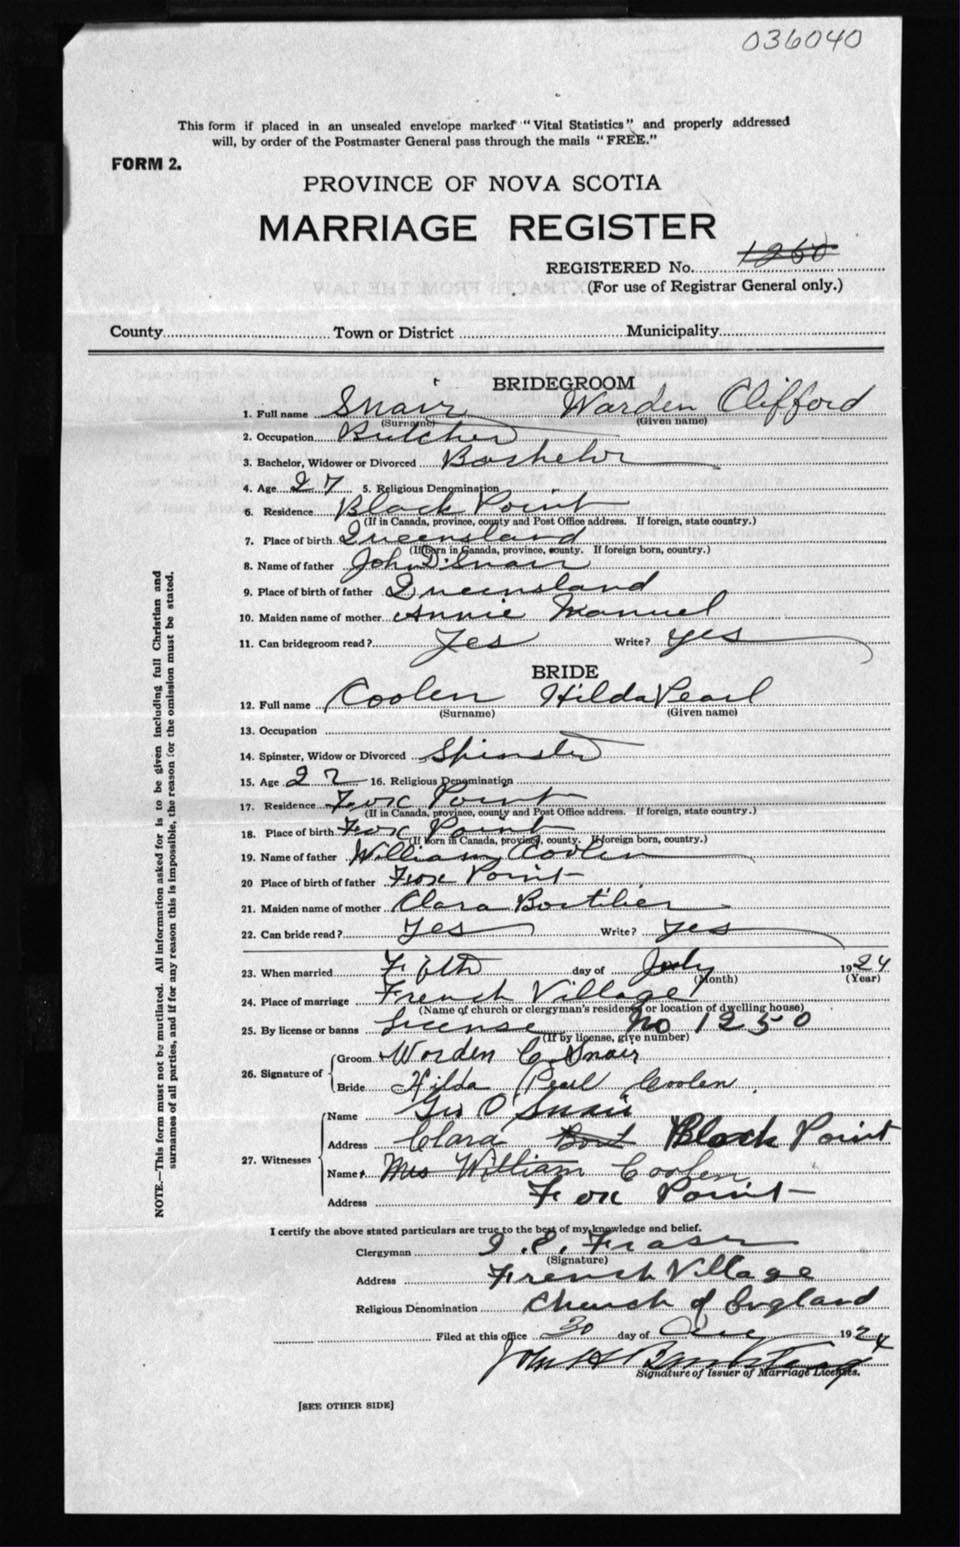 036040
This form if placed in an unsealed envelope marked "Vital Statistics" and properly addressed
will, by order of the Postmaster General pass through the mails "FREE."
FORM 2.
PROVINCE OF NOVA SCOTIA
MARRIAGE REGISTER
REGISTERED No. 1260
(For use of Registrar General only.)
County Town or District Municipality
BRIDEGROOM
1. Full name Snair Warden Clifford
(Surname) (Given name)
2. Occupation Butcher
3. Bachelor, Widower or Divorced Bachelor
4. Age 27 5. Religious Denomination
6. Residence Black Point
(If in Canada, province, county and Post Office address. If foreign, state country.)
7. Place of birth Queensland
(If born in Canada, province, county. If foreign born, country.)
8. Name of father John D. Snair
9. Place of birth of father Queensland
10. Maiden name of mother Annie Manuel
11. Can bridegroom read? Yes Write? yes
BRIDE
12. Full name Coolen Hilda Pearl
(Surname) (Given name)
13. Occupation
14. Spinster, Widow or Divorced Spinster
15. Age 22 16. Religious Denomination
17. Residence Fox Point
(If in Canada, province, county and Post Office address. If foreign, state country.)
18. Place of birth Fox Point
(If born in Canada, province, county. If foreign born, country.)
19. Name of father William Coolen
20 Place of birth of father Fox Point
21. Maiden name of mother Clara Boutilier
22. Can bride read? Yes Write? Yes
23. When married Fifth day of July 1924
(Month) (Year)
24. Place of marriage French Village
(Name of church or clergyman's residence or location of dwelling house)
25. By license or banns License No 1250
(If by license, give number)
26. Signature of Groom Worden C Snair
Bride Hilda Pearl Coolen
27. Witnesses Name Geo O Snair
Address Clara Bout Black Point
Name Mrs William Coolen
Address Fox Point
I certify the above stated particulars are true to the best of my knowledge and belief.
Clergyman Fraser
(Signature)
Address French Village
Religious Denomination Church of England
Filed at this office 30 day of 1924
John H
Signature of Issuer of Marriage Licenses.
[SEE OTHER SIDE]
NOTE.—This form must not be mutilated. All information asked for is to be given including full Christian and
surnames of all parties, and if for any reason this is impossible, the reason for the omission must be stated.